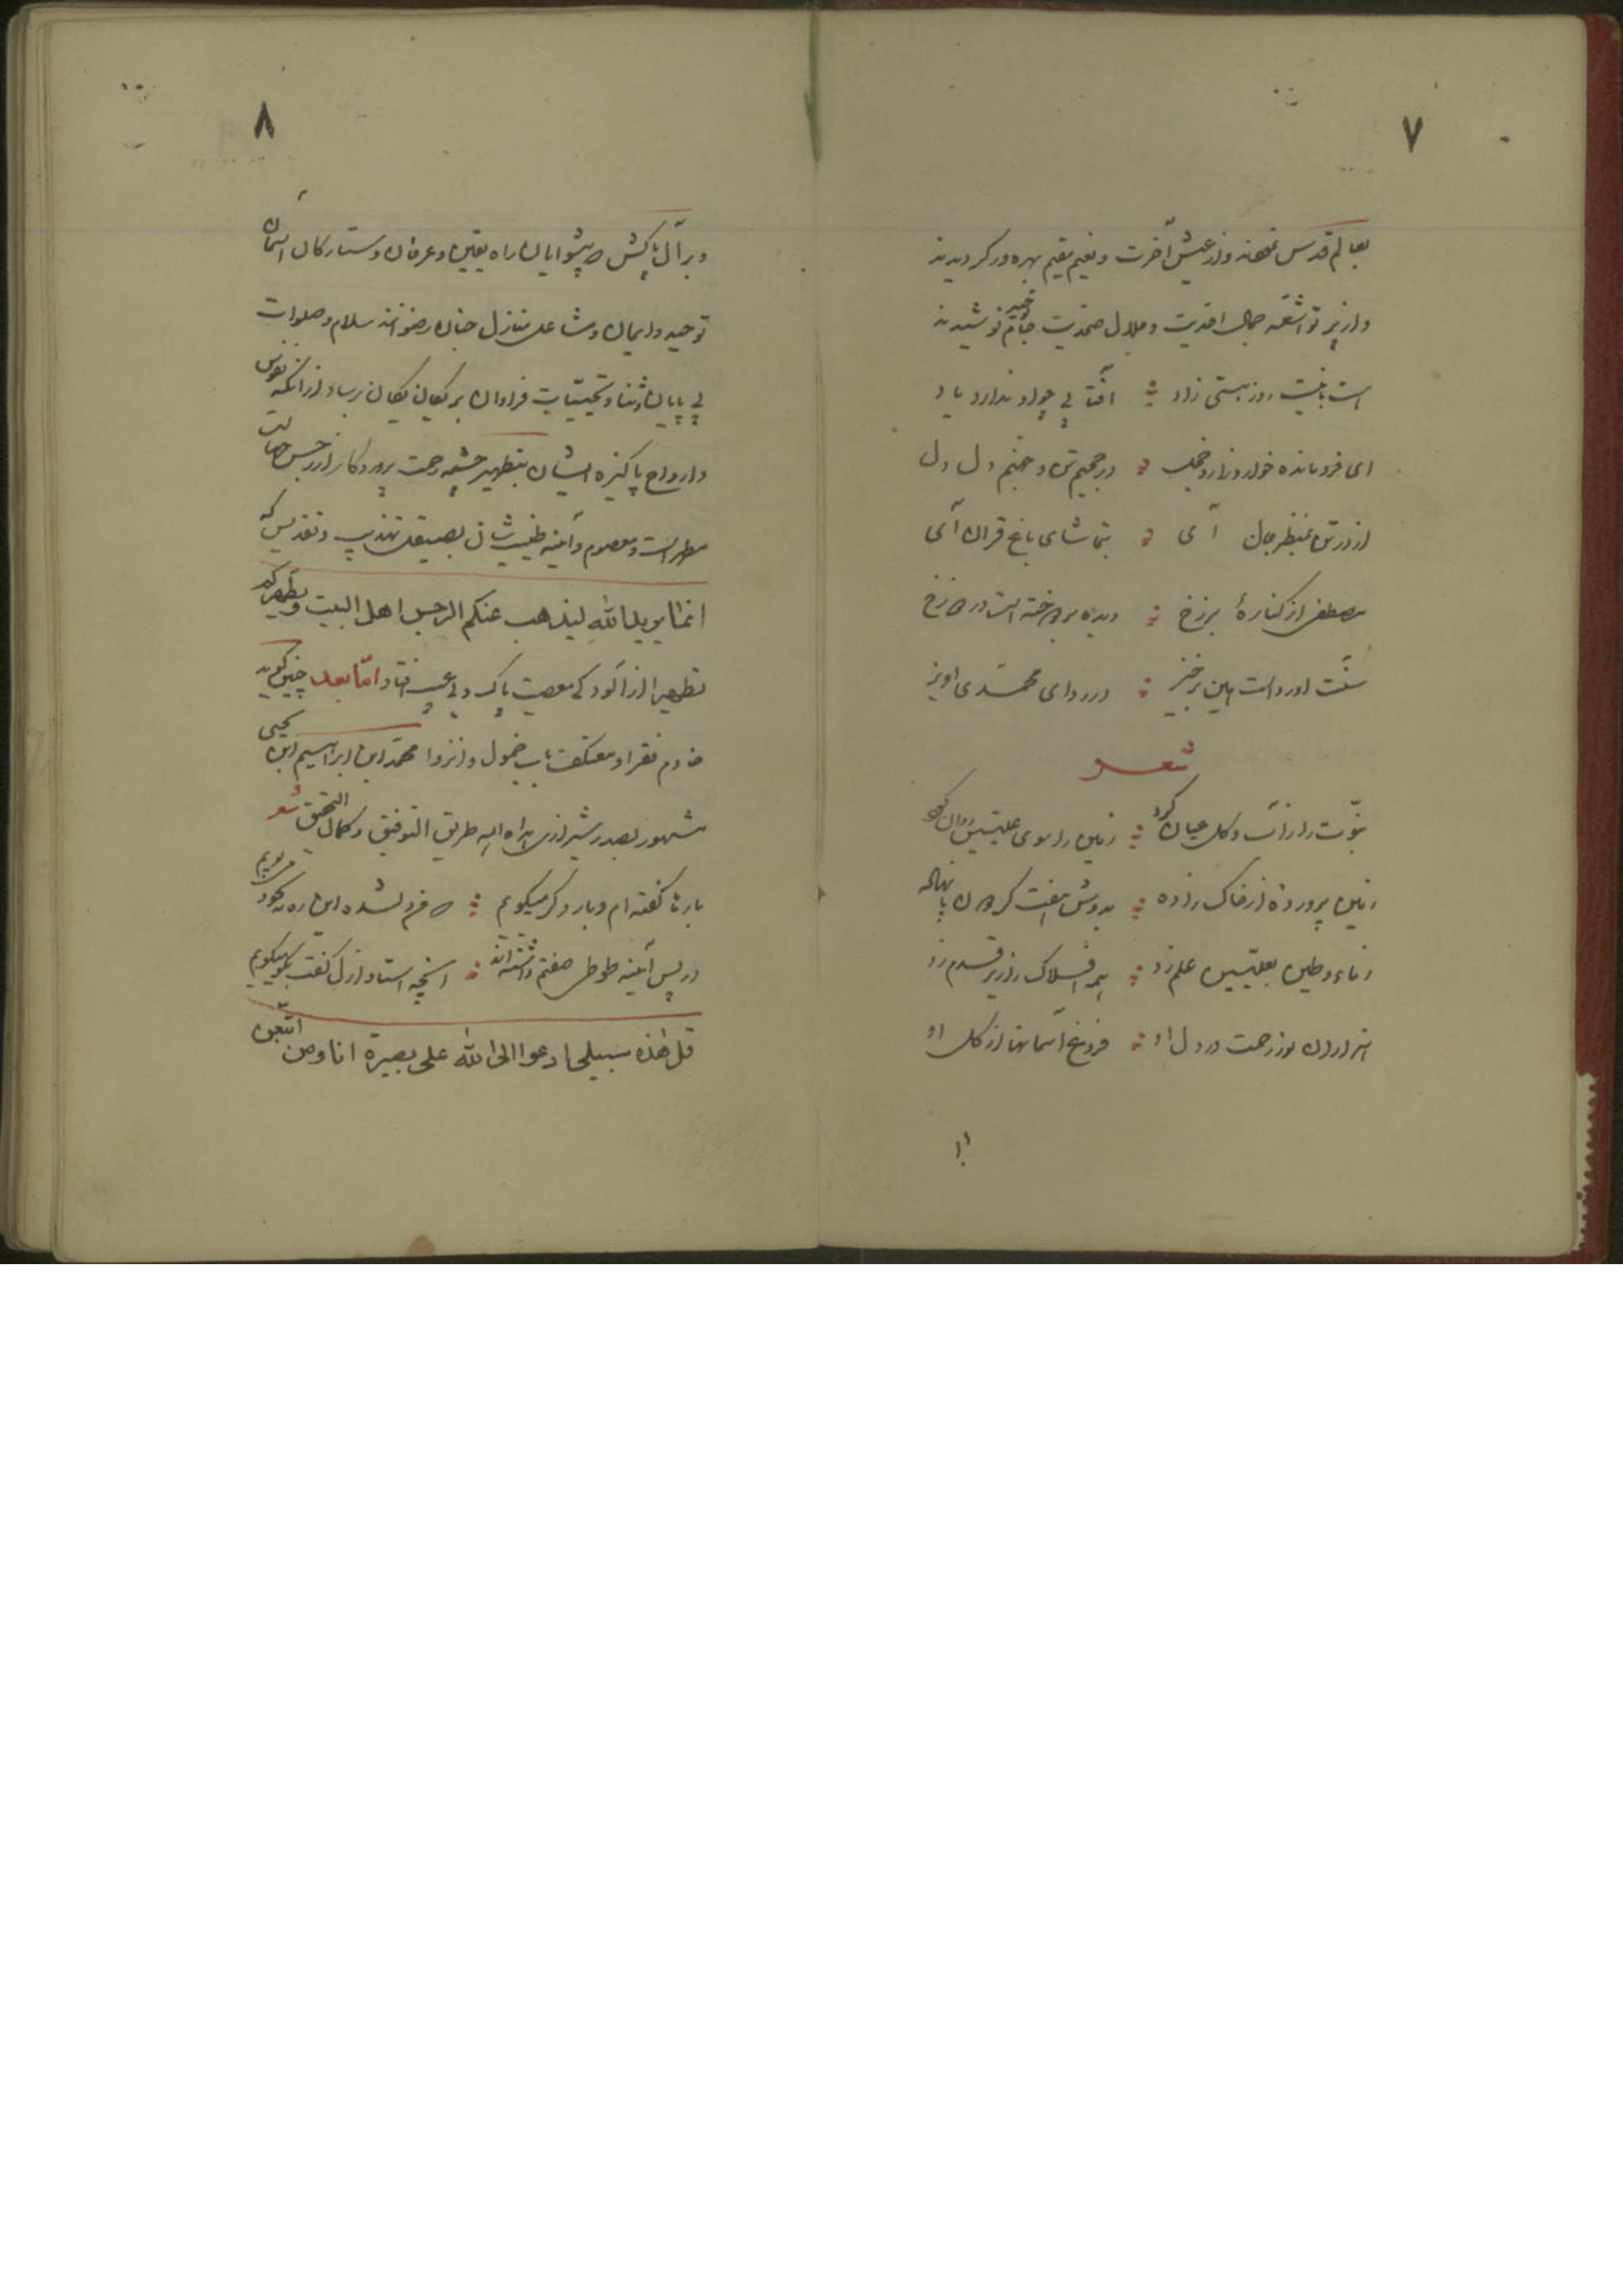 ۷
بعالم قدس نهند و از عیش آخرت و نعیم مقیم بهره‌ور گردیدند
و از پرتو اشعّه جمال احدیت و جلال صمدیت جام توحید نوشیدند
است با نیست روز هستی زاد آفتابی چو او ندارد یاد
ای فرو مانده خوار و زار و خجل در جحیم تن و جهنم دل
از در تن بمنظر جان آی بتماشای باغ قران آی
مصطفی از کنارهٔ برزخ دیده بر دوخته است در دوزخ
سنّت او رداست هین برخیز در ردای محمّدی آویز
شعر
نبوّت را ز آب و گل عیان کرد زمین را سوی علیّین روان کرد
زمین پرورده از خاک زاده بدوش هفت گردون پا نهاده
ز ماء و طین بعلیّین علم زد همه افلاک را زیر قدم زد
هزاران نور رحمت در دل او فروغ آسمانها از گل او
۸
و بر آل پاکش که پیشوایان راه یقین و عرفان و ستارگان آسمان
توحید و ایمان و مشاعل منازل جنان و رضوانند سلام و صلوات
بی پایان و ثنا و تحیّات فراوان بر یکان یکان برساد از آنکه نفوس
و ارواح پاکیزه ایشان بتطهیر چشمه رحمت پروردگار از رجس جهالت
مطهر است و معصوم و آینه طینت شان بصیقل تهذیب و تقدیس که
انما یرید الله لیذهب عنکم الرجس اهل البیت و یطهرکم
تطهیرا از آلودگی معصیت پاک و بی عیب افتاد امّا بعد چنین گوید
خادم فقرا و معتکف باب خمول و انزوا محمّد ابن ابراهیم ابن یحیی
مشهور بصدر شیرازی هداه الله طریق التوفیق و کمال التحقیق شعر
بارها گفته‌ام و بار دگر میگویم که من دلشده این ره نه بخود میپویم
در پس آینه طوطی صفتم داشته‌اند آنچه استاد ازل گفت بگو میگویم
قل هذه سبیلی ادعوا الی الله علی بصیرة انا و من اتّبعن